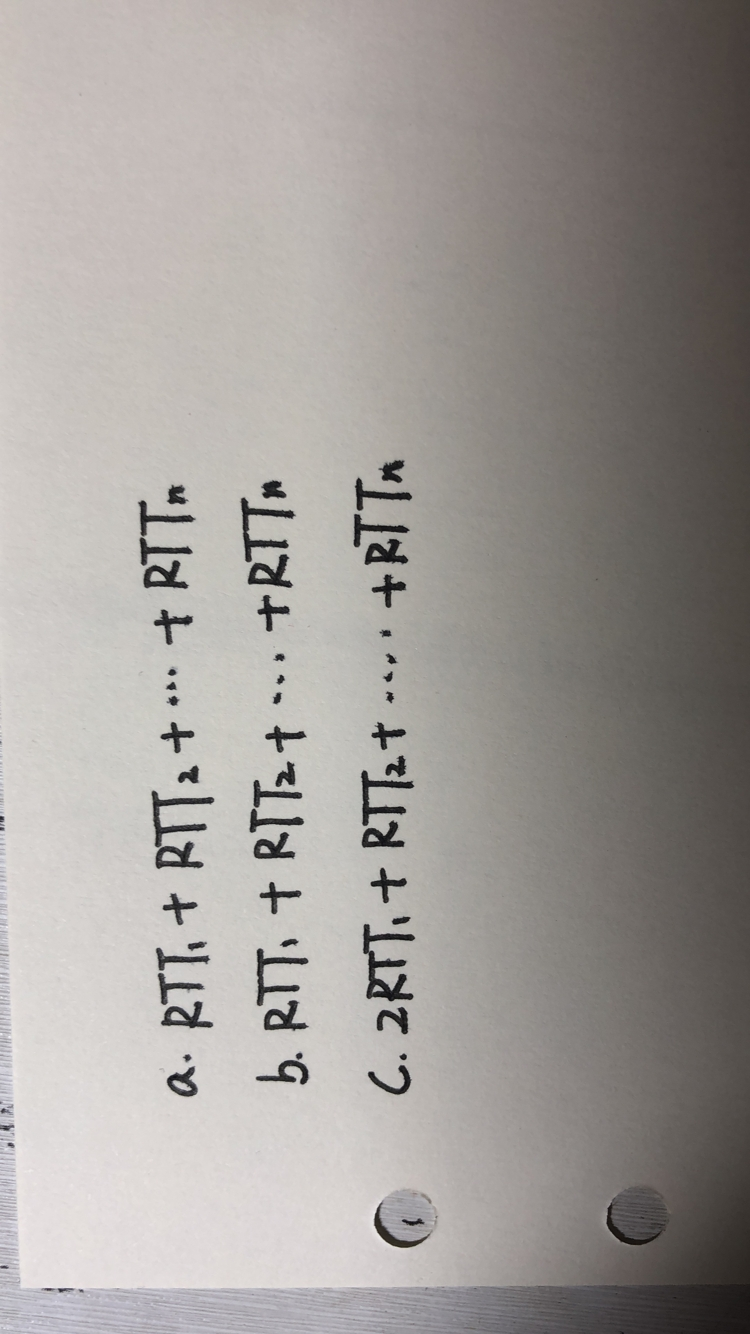 a. RTT₁ + RTT₂ + ... + RTTₙ
b. RTT₁ + RTT₂ + ... + RTTₙ
c. 2RTT₁ + RTT₂ + .... + RTTₙ